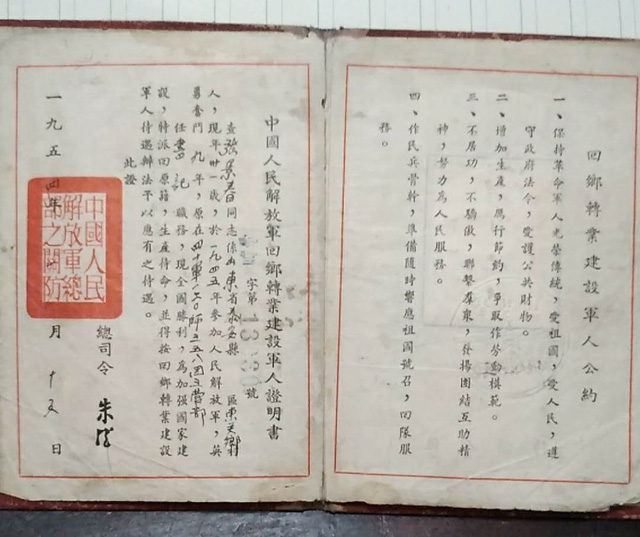 回鄉轉業建設軍人公約
一、保持革命軍人光榮傳統，愛祖國，愛人民，遵
守政府法令，愛護公共財物。
二、增加生產，厲行節約，爭取作勞動模範。
三、不居功，不驕傲，聯繫羣衆，發揚團結互助精
神，努力為人民服務。
四、作民兵骨幹，準備隨時響應祖國號召，回隊服
務。
中國人民解放軍回鄉轉業建設軍人證明書
字第 號
查張景春同志係山東省泰安縣 區東关鄉村
人，現年卅一歲，於一九四五年參加人民解放軍，英
勇奮鬥九年，原在四十軍一二〇師三五八团三营部
任書記職務，現全國勝利，為加强國家建
設，特派回原籍，生產待命，並得按回鄉轉業建設
軍人待遇辦法享以應有之待遇。
此證
總司令 朱德
一九五四年 月十五日
中國人民
解放軍總
部之關防